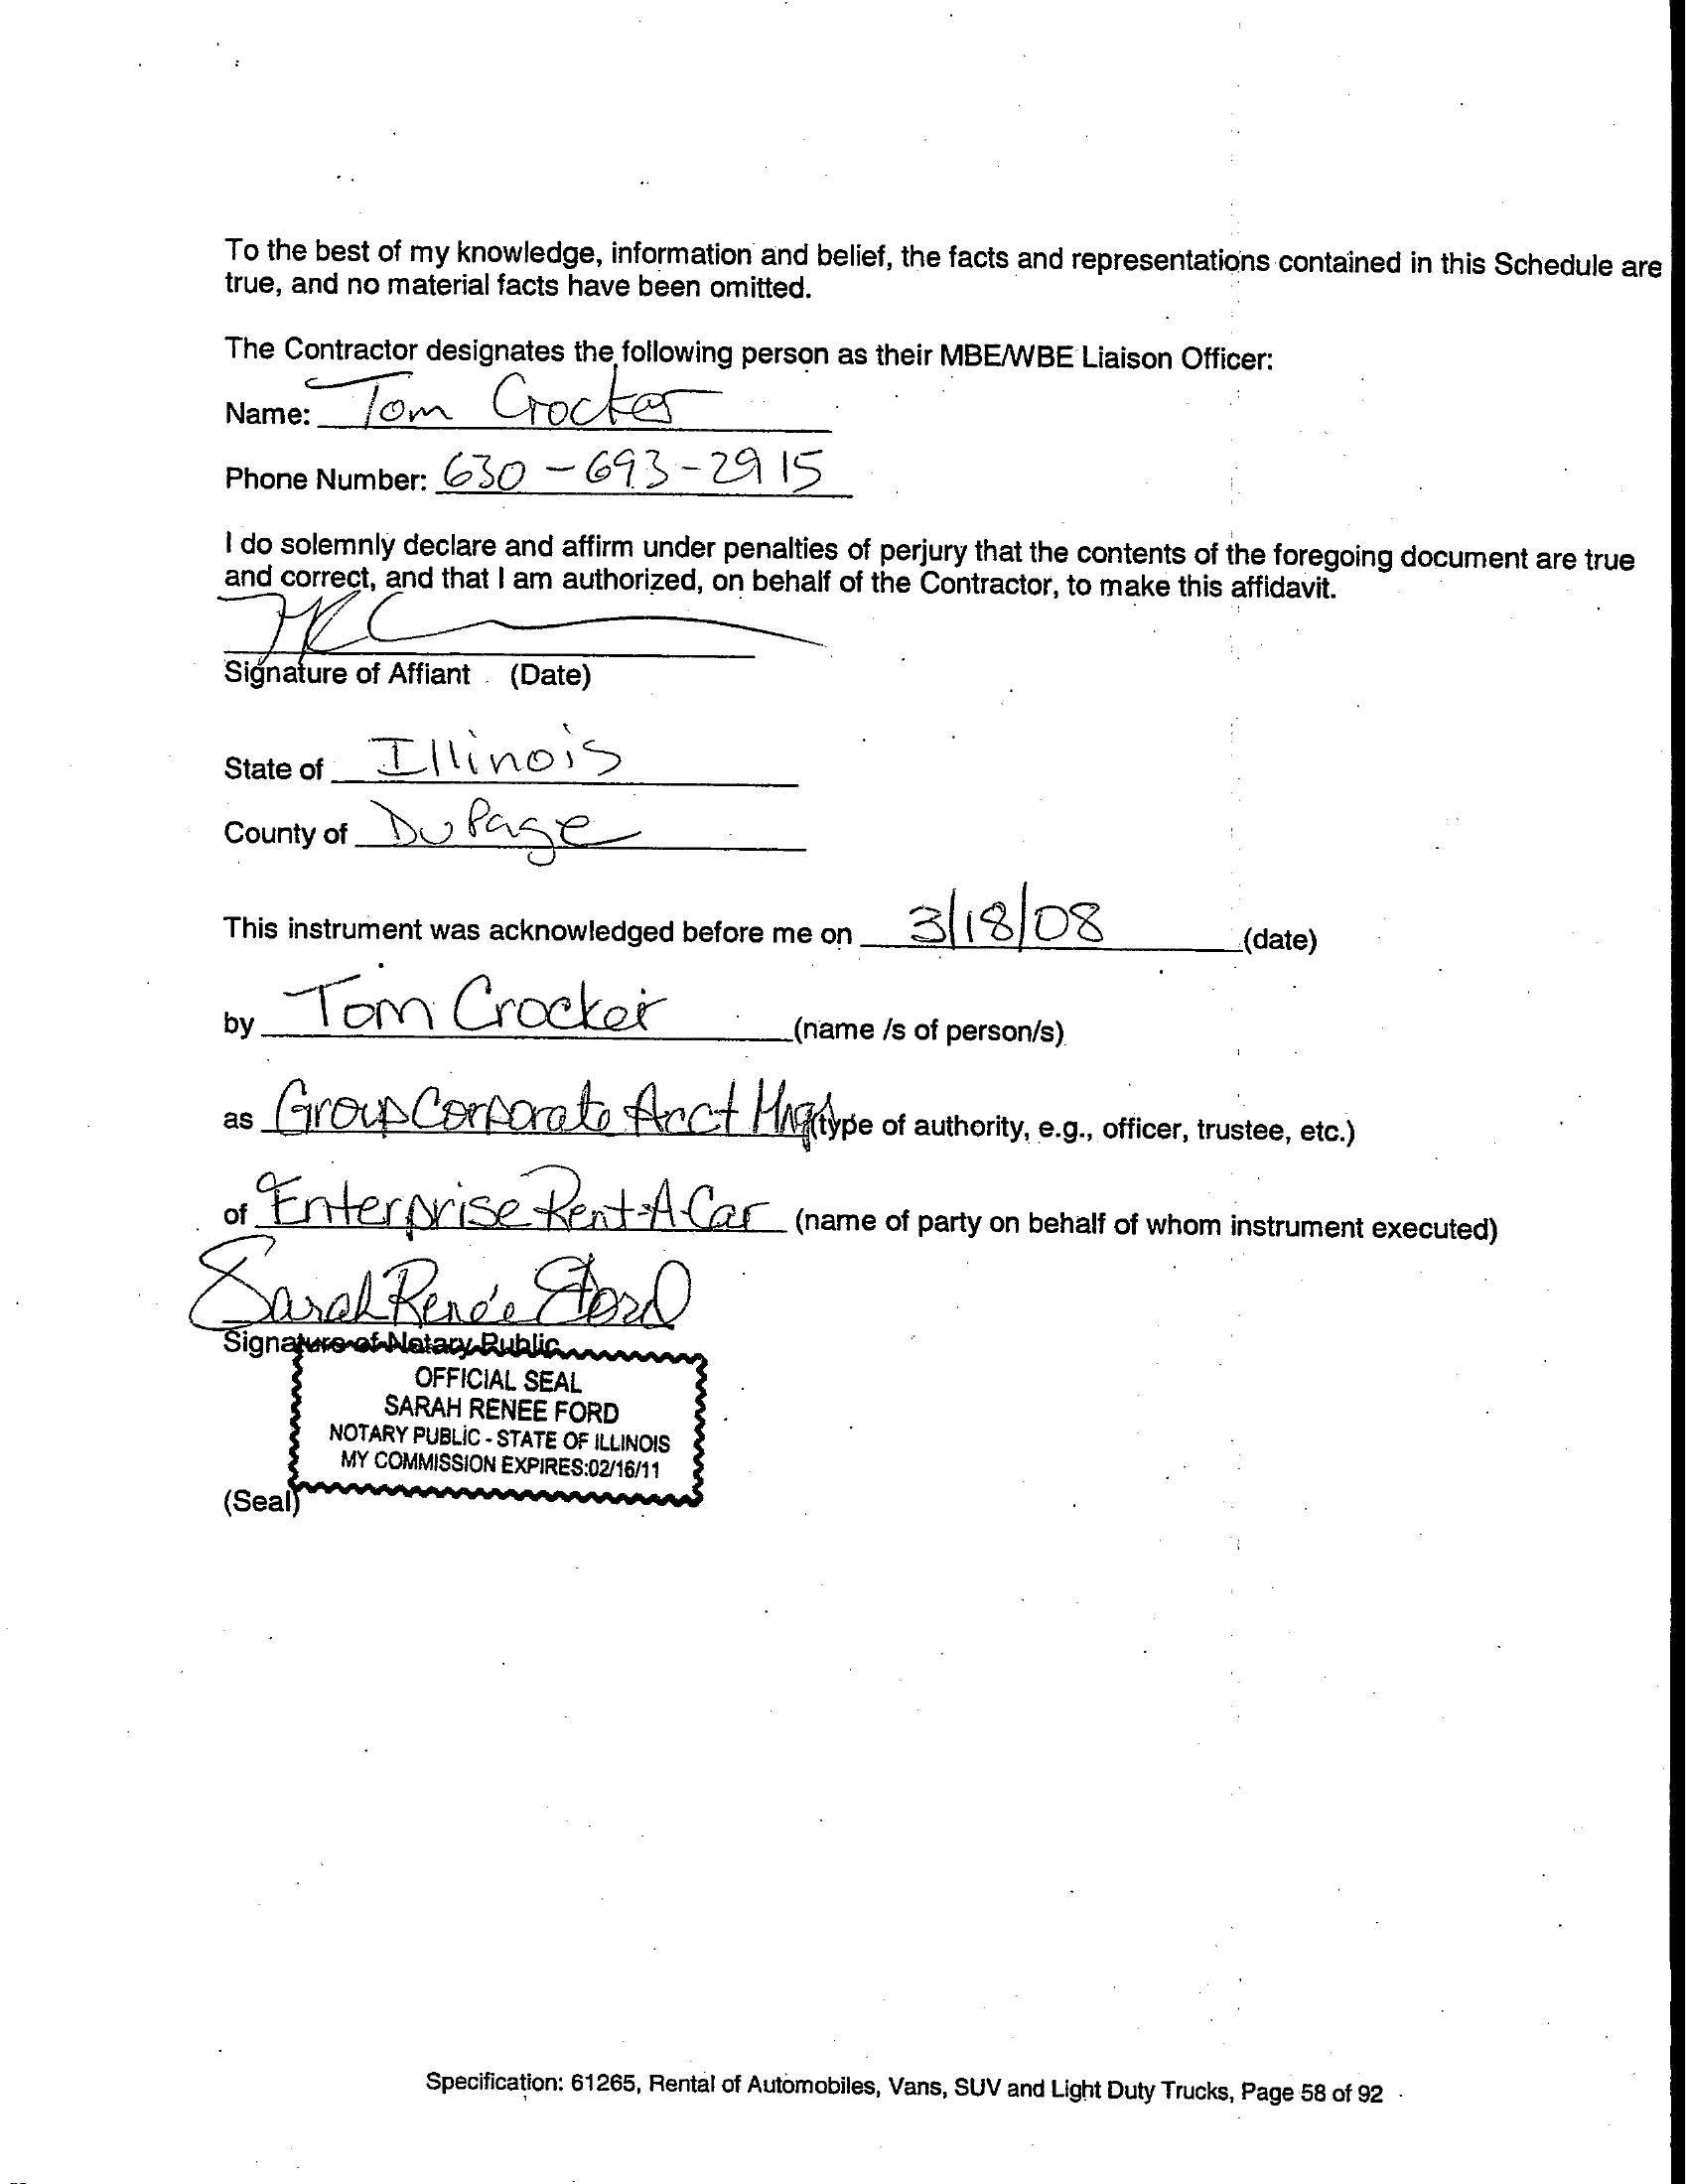 To the best of my knowledge, information and belief, the facts and representations contained in this Schedule are
true, and no material facts have been omitted.
The Contractor designates the following person as their MBE/WBE Liaison Officer:
Name: Tom Crocker
Phone Number: 630-693-2915
I do solemnly declare and affirm under penalties of perjury that the contents of the foregoing document are true
and correct, and that I am authorized, on behalf of the Contractor, to make this affidavit.
Signature of Affiant (Date)
State of Illinois
County of DuPage
This instrument was acknowledged before me on 3/18/08 (date)
by Tom Crocker (name /s of person/s)
as Group Corporate Acct Mngr (type of authority, e.g., officer, trustee, etc.)
of Enterprise Rent-A-Car (name of party on behalf of whom instrument executed)
Sarah Renée Ford
Signature of Notary Public
OFFICIAL SEAL
SARAH RENEE FORD
NOTARY PUBLIC - STATE OF ILLINOIS
MY COMMISSION EXPIRES:02/16/11
(Seal)
Specification: 61265, Rental of Automobiles, Vans, SUV and Light Duty Trucks, Page 58 of 92